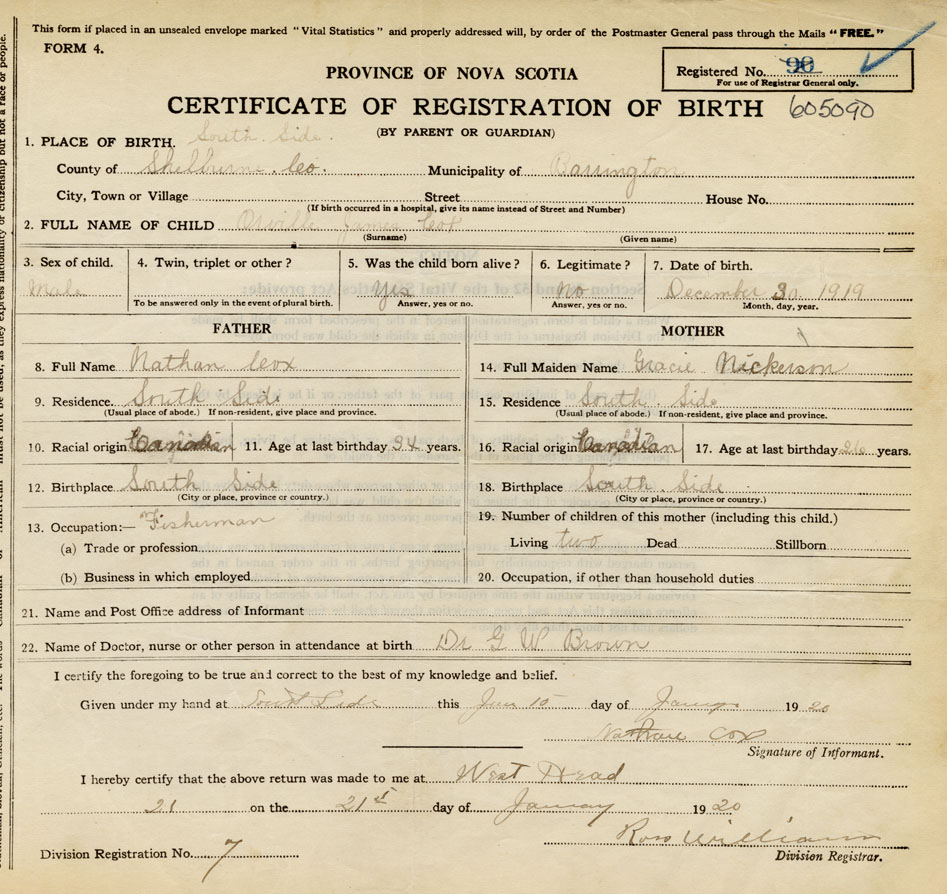 This form if placed in an unsealed envelope marked "Vital Statistics" and properly addressed will, by order of the Postmaster General pass through the Mails "FREE."
FORM 4.
Registered No. 90
For use of Registrar General only.
PROVINCE OF NOVA SCOTIA
CERTIFICATE OF REGISTRATION OF BIRTH 605090
(BY PARENT OR GUARDIAN)
1. PLACE OF BIRTH. South Side.
County of Shelburne. Co. Municipality of Barrington
City, Town or Village Street House No.
(If birth occurred in a hospital, give its name instead of Street and Number)
2. FULL NAME OF CHILD Orville James Cox
(Surname) (Given name)
3. Sex of child. 4. Twin, triplet or other? 5. Was the child born alive? 6. Legitimate? 7. Date of birth.
Male Yes No December 30 1919
To be answered only in the event of plural birth. Answer, yes or no. Answer, yes or no. Month, day, year.
FATHER
8. Full Name Nathan Cox
9. Residence South Side
(Usual place of abode.) If non-resident, give place and province.
10. Racial origin Canadian 11. Age at last birthday 34 years.
12. Birthplace South Side
(City or place, province or country.)
13. Occupation:— Fisherman
(a) Trade or profession
(b) Business in which employed
MOTHER
14. Full Maiden Name Gracie Nickerson
15. Residence South Side
(Usual place of abode.) If non-resident, give place and province.
16. Racial origin Canadian 17. Age at last birthday 26 years.
18. Birthplace South Side
(City or place, province or country.)
19. Number of children of this mother (including this child.)
Living two Dead Stillborn
20. Occupation, if other than household duties
21. Name and Post Office address of Informant
22. Name of Doctor, nurse or other person in attendance at birth Dr G W Brown
I certify the foregoing to be true and correct to the best of my knowledge and belief.
Given under my hand at South Side this 15 day of 1920
Cox
Signature of Informant.
I hereby certify that the above return was made to me at West Head
21 on the 21st day of January 1920
Ross Williams
Division Registrar.
Division Registration No. 7